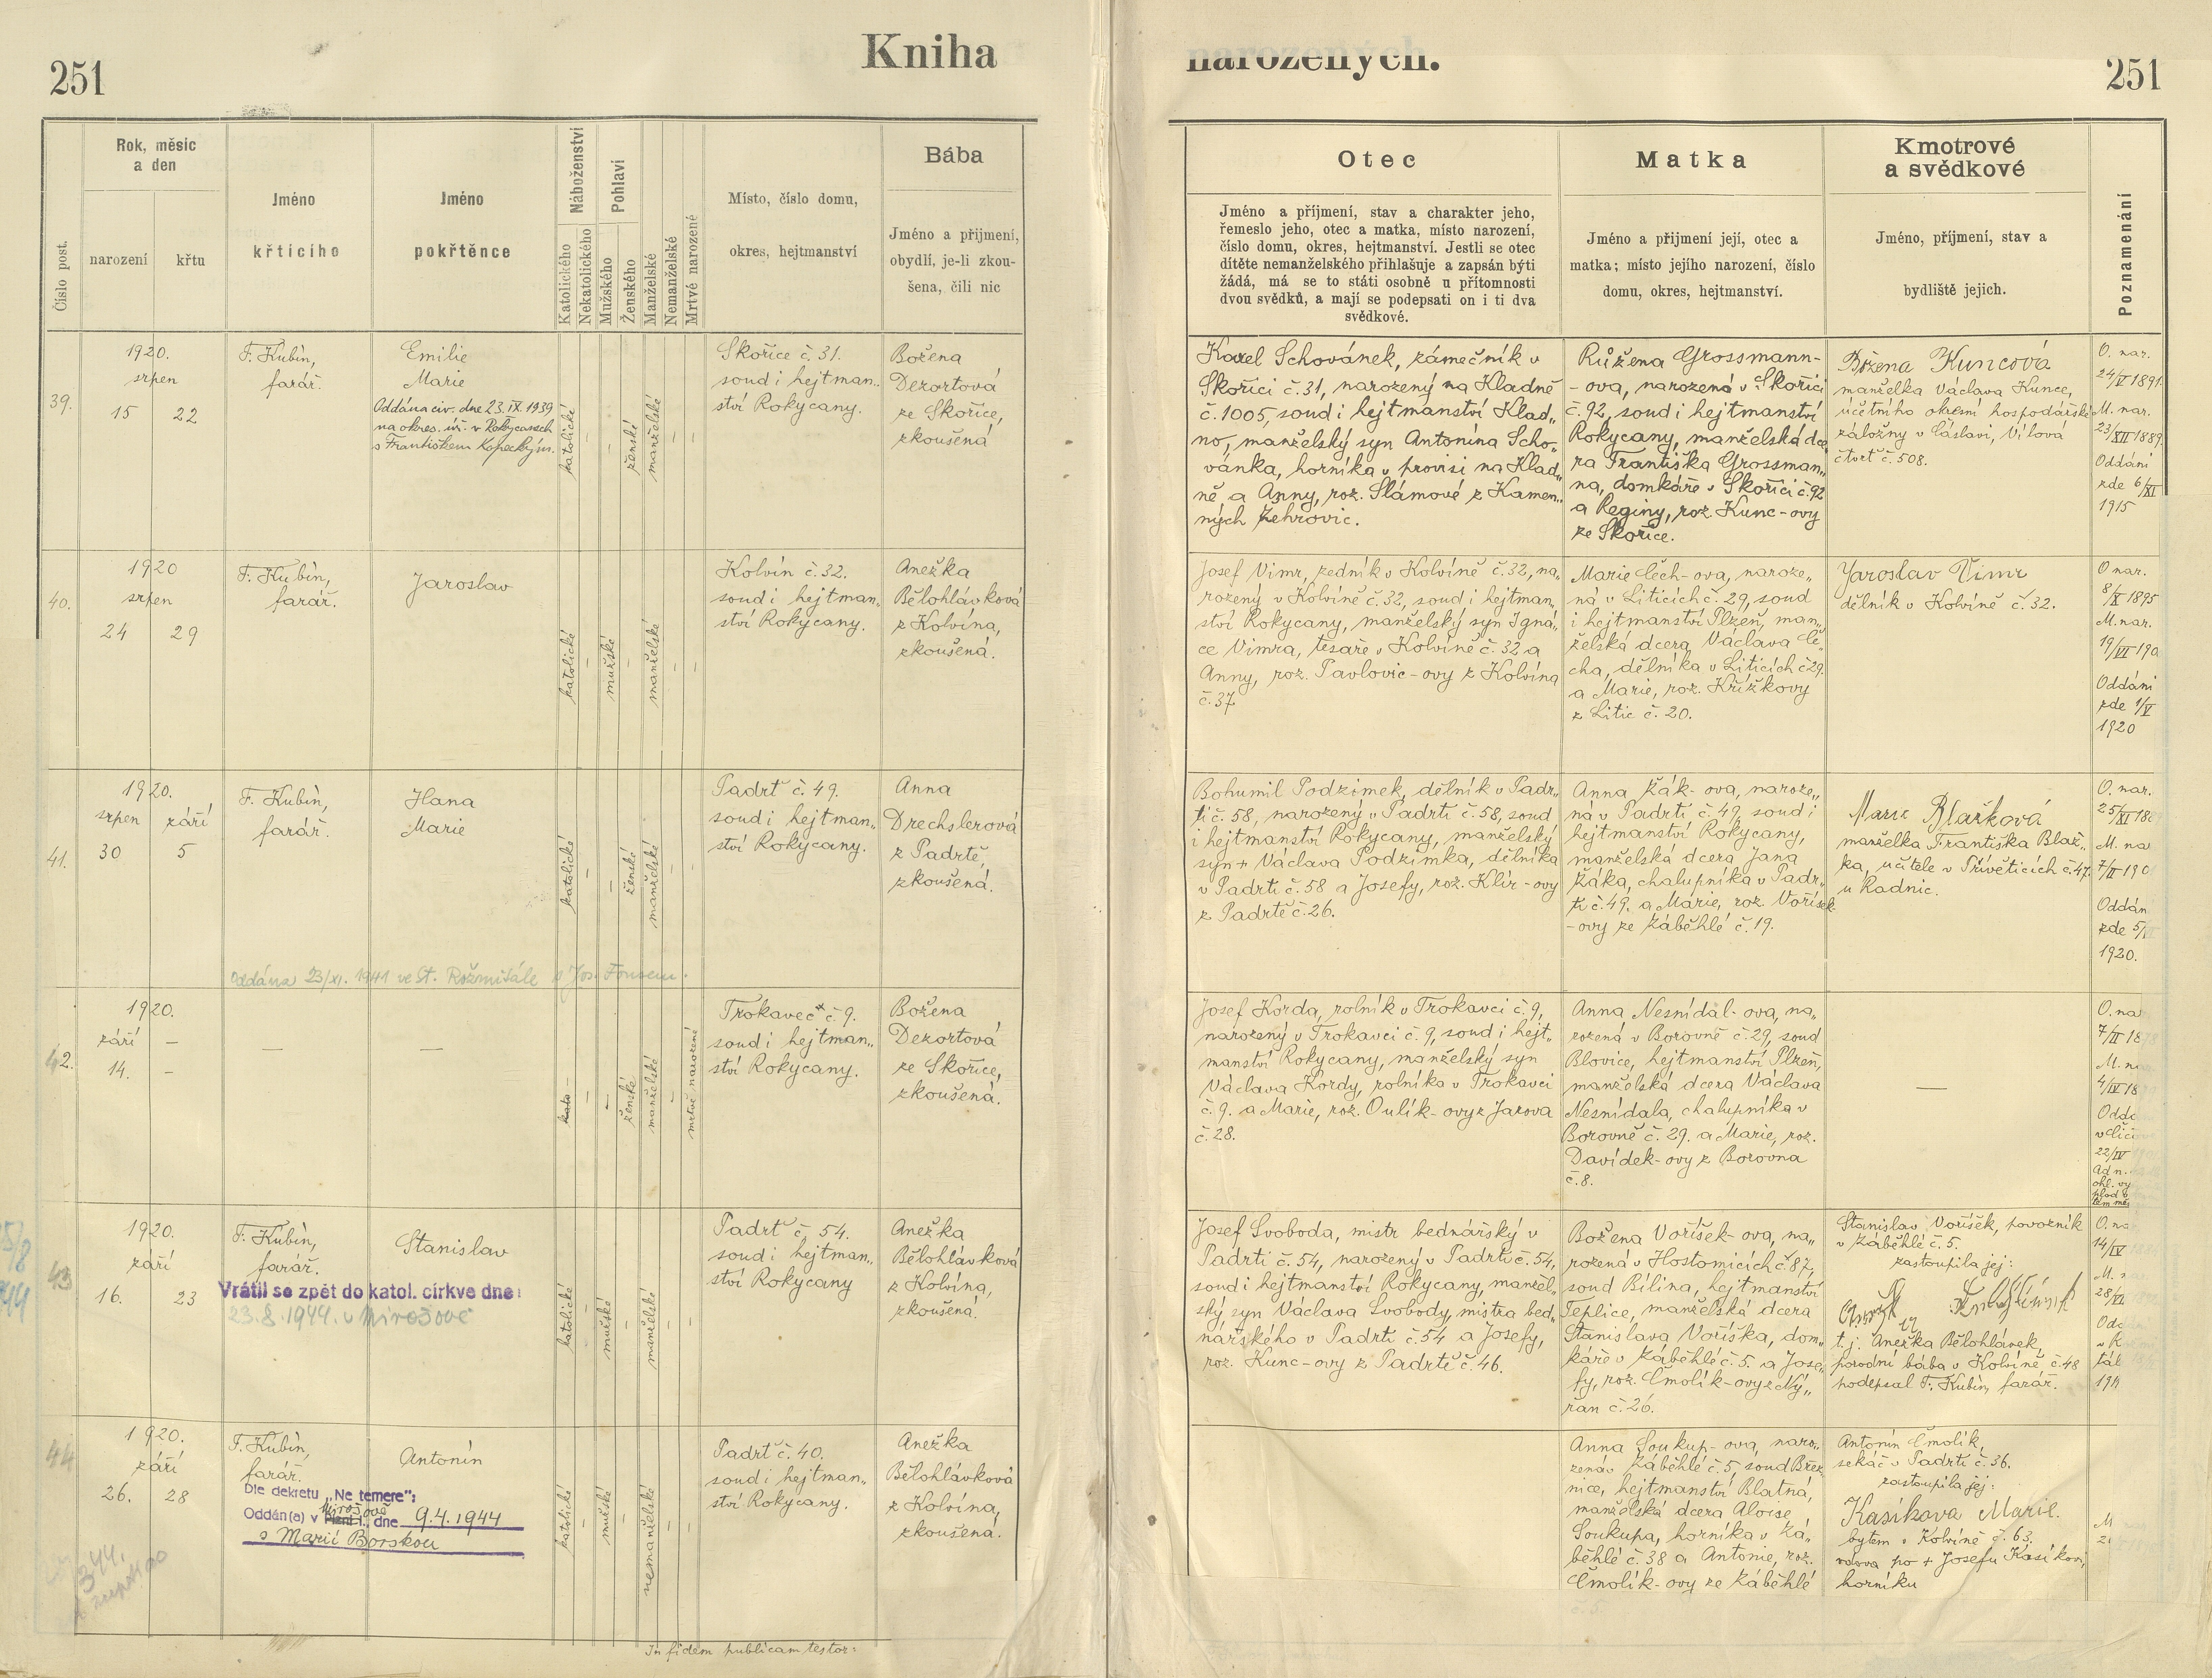 251
Kniha
narozených.
251
Číslo post.
Rok, měsíc
a den
narození
křtu
Jméno
křticího
Jméno
pokřtěnce
Náboženství
Katolického
Nekatolického
Pohlaví
Mužského
Ženského
Manželské
Nemanželské
Mrtvě narozené
Místo, číslo domu,
okres, hejtmanství
Bába
Jméno a přijmení,
obydlí, je-li zkou-
šena, čili nic
Otec
Jméno a příjmení, stav a charakter jeho,
řemeslo jeho, otec a matka, místo narození,
číslo domu, okres, hejtmanství. Jestli se otec
dítěte nemanželského přihlašuje a zapsán býti
žádá, má se to státi osobně u přítomnosti
dvou svědků, a mají se podepsati on i ti dva
svědkové.
Matka
Jméno a přijmení její, otec a
matka; místo jejího narození, číslo
domu, okres, hejtmanství.
Kmotrové
a svědkové
Jméno, příjmení, stav a
bydliště jejich.
Poznamenání
39.
1920.
srpen
15 22
F. Kubín,
farář.
Emilie
Marie
Oddána civ. dne 23. IX. 1939
na okres. úř. v Rokycanech
s Františkem Kopeckým.
katolické
–
–
ženské
manželské
–
–
Skořice č. 31.
soud i hejtman„
ství Rokycany.
Božena
Dezortová
ze Skořice,
zkoušená
Karel Schovánek, zámečník v
Skořici č. 31, narozený na Kladně
č. 1005, soud i hejtmanství Klad„
no, manželský syn Antonína Scho„
vánka, horníka v provisi na Klad„
ně a Anny, roz. Slámové z Kamen„
ných Žehrovic.
Růžena Grossmann-
-ova, narozená v Skořici
č. 92, soud i hejtmanství
Rokycany, manželská dce
ra Františka Grossman„
na, domkáře v Skořici č. 92
a Reginy, roz. Kunc-ovy
ze Skořice.
Božena Kuncová
manželka Václava Kunce,
účetního okresní hospodářské
záložny v Čáslavi, Vílová
čtvrť č. 508.
O. nar.
24/V 1891.
M. nar.
23/XII 1889.
Oddáni
zde 6/XI
1915
40.
1920
srpen
24 29
F. Kubín,
farář.
Jaroslav
katolické
–
mužské
–
manželské
–
–
Kolvín č. 32.
soud i hejtman„
ství Rokycany.
Anežka
Bělohlávková
z Kolvína,
zkoušená.
Josef Vimr, zedník v Kolvíně č. 32, na„
rozený v Kolvíně č. 32, soud i hejtman„
ství Rokycany, manželský syn Igná„
ce Vimra, tesaře v Kolvíně č. 32 a
Anny, roz. Pavlovic-ovy z Kolvína
č. 37
Marie Čech-ova, naroze„
ná v Liticích č. 29, soud
i hejtmanství Plzeň, man„
želská dcera Václava Če„
cha, dělníka v Liticích č 29.
a Marie, roz. Křížkovy
z Litic č. 20.
Jaroslav Vimr
dělník v Kolvíně č. 32.
O nar.
8/X 1895
M. nar.
19/VI 190
Oddáni
zde 1/V
1920
41.
1920.
srpen září
30 5
F. Kubín,
farář.
Hana
Marie
katolické
–
–
ženské
manželské
–
–
Padrť č. 49.
soud i hejtman„
ství Rokycany.
Anna
Drechslerová
z Padrtě,
zkoušená.
Bohumil Podzimek, dělník v Padr„
ti č. 58, narozený v Padrti č. 58, soud
i hejtmanství Rokycany, manželský
syn + Václava Podzimka, dělníka
v Padrti č. 58 a Josefy, roz. Klír-ovy
z Padrtě č. 26.
Anna Žák-ova, naroze„
ná v Padrti č. 49, soud i
hejtmanství Rokycany,
manželská dcera Jana
Žáka, chalupníka v Padr„
ti č. 49. a Marie, roz. Voříšek
-ovy ze Záběhlé č. 19.
Marie Blažková
manželka Františka Blaž„
ka, učitele v Přívěticích č. 47.
u Radnic.
O. nar.
25/XI 18
M. na
7/II 190
Oddán
zde 5/
1920.
Oddána 23/XI. 1941 ve St. Rožmitále s Jos. Fonsem.
42.
1920.
září –
14. –
—
—
kato
–
–
ženské
manželské
–
mrtvě narozené
Trokavec × č. 9.
soud i hejtman„
ství Rokycany.
Božena
Dezortová
ze Skořice,
zkoušená.
Josef Korda, rolník v Trokavci č. 9,
narozený v Trokavci č. 9, soud i hejt„
manství Rokycany, manželský syn
Václava Kordy, rolníka v Trokavci
č. 9. a Marie, roz. Oulík-ovy z Jarova
č. 28.
Anna Nesnídal-ova, na„
rozená v Borovně č. 29, soud
Blovice, hejtmanství Plzeň,
manželská dcera Václava
Nesnídala, chalupníka v
Borovně č. 29. a Marie, roz.
Davídek-ovy z Borovna
č. 8.
—
O. na
7/II 18
M. na
4/IV 18
Oddá
22/IV
43
1920.
září
16. 23
F. Kubín,
farář.
Stanislav
Vrátil se zpět do katol. církve dne:
23.8.1944. v Mirošově
katolické
–
mužské
–
manželské
–
–
Padrť č. 54.
soud i hejtman„
ství Rokycany
Anežka
Bělohlávková
z Kolvína,
zkoušená.
Josef Svoboda, mistr bednářský v
Padrti č. 54, narozený v Padrti č. 54,
soud i hejtmanství Rokycany, manžel„
ský syn Václava Svobody, mistra bed„
nářského v Padrti č. 54 a Josefy,
roz. Kunc-ovy z Padrtě č. 46.
Božena Voříšek-ova, na„
rozená v Hostomicích č 87,
soud Bílina, hejtmanství
Teplice, manželská dcera
Stanislava Voříška, dom„
káře v Záběhlé č. 5. a Jose„
fy, roz. Čmolík-ovy z Ný„
řan č. 26.
Stanislav Voříšek, povozník
v Záběhlé č. 5.
zastoupila jej:
t. j. Anežka Bělohlávek,
porodní bába v Kolvíně č. 48
podepsal F. Kubín, farář.
O. na
14/IV
28/VI
44
1920.
září
26. 28
F. Kubín,
farář.
Antonín
Dle dekretu „Ne temere":
Mirošově
Oddán(a) v Plzni I., dne 9.4.1944
s Marií Borskou
katolické
–
mužské
–
nemanželské
–
–
Padrť č. 40.
soud i hejtman„
ství Rokycany.
Anežka
Bělohlávková
z Kolvína,
zkoušená.
Anna Soukup-ova, naro„
zená v Záběhlé č. 5, soud Břez
nice, hejtmanství Blatná,
manželská dcera Aloise
Soukupa, horníka v Zá„
běhlé č. 38 a Antonie, roz.
Čmolík-ovy ze Záběhlé
č. 5.
Antonín Čmolík,
sekáč v Padrti č. 36.
zastoupila jej:
Kasíkova Marie.
bytem v Kolvíně č. 63.
vdova po + Josefu Kasíkovi,
horníku
In fidem publicam testor: